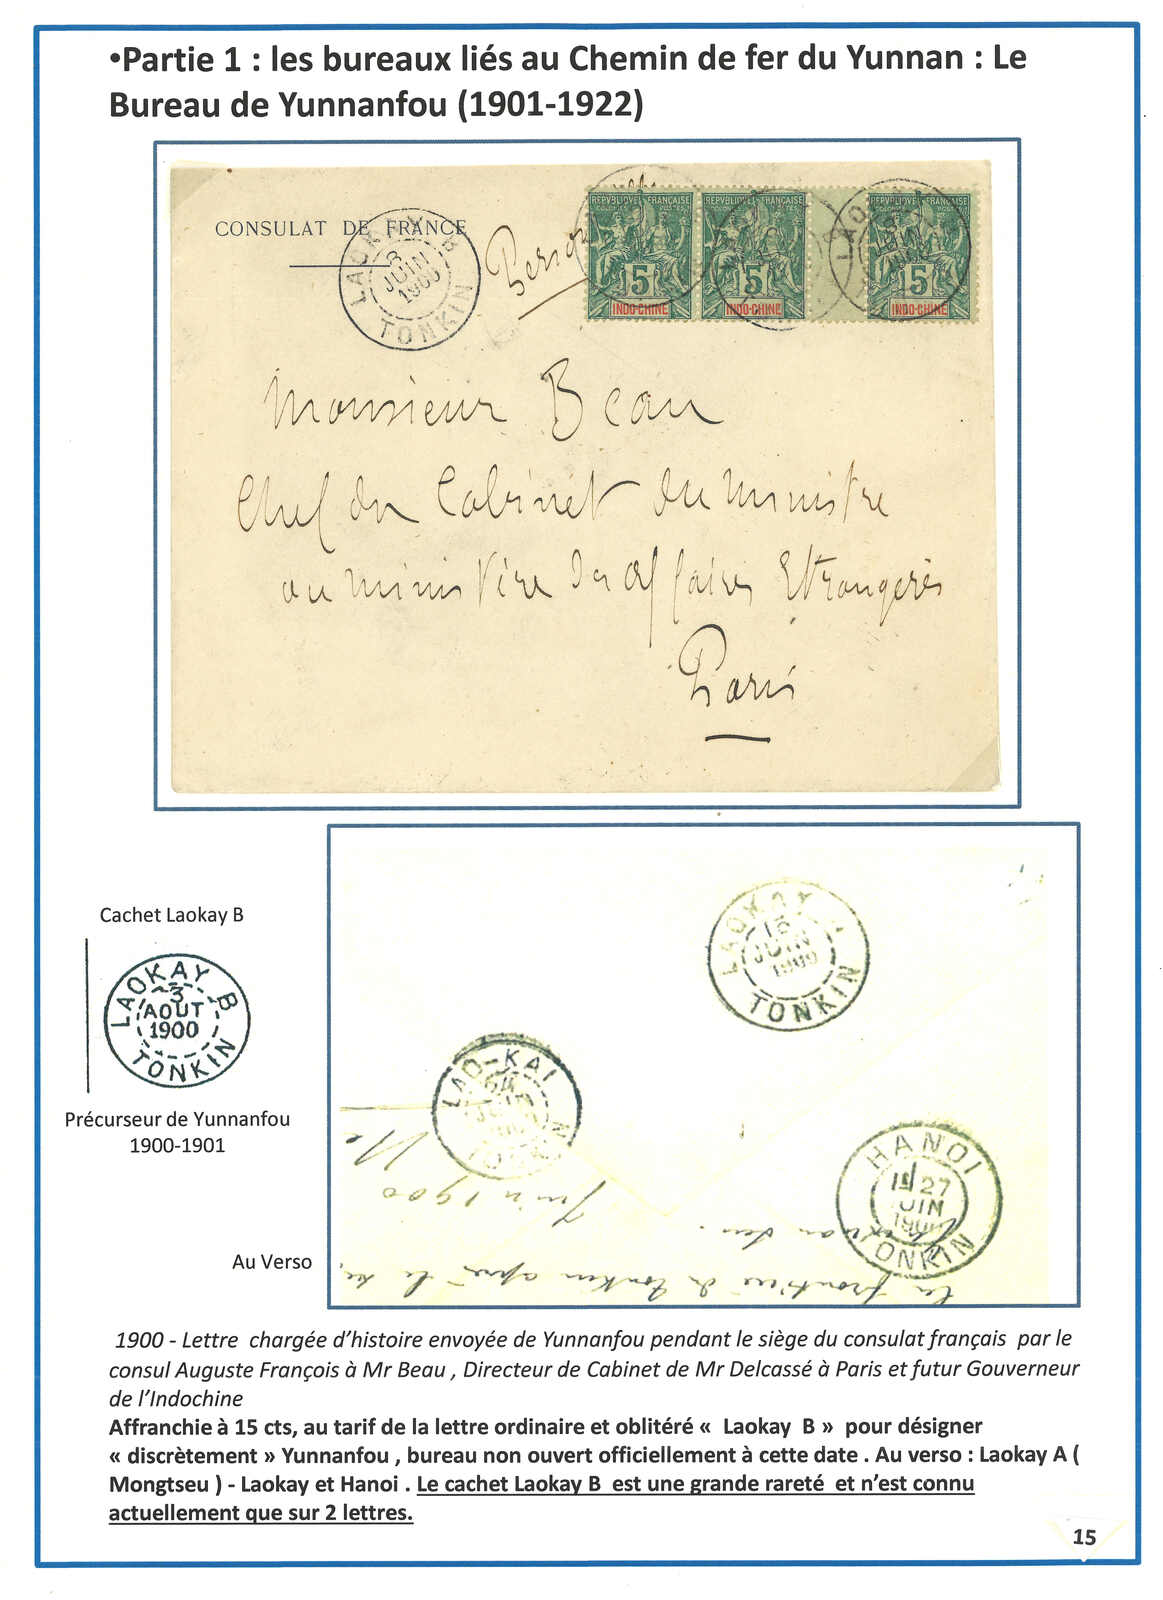 •Partie 1 : les bureaux liés au Chemin de fer du Yunnan : Le
Bureau de Yunnanfou (1901-1922)
CONSULAT DE FRANCE
LAOKAY B
8
JUIN
1900
TONKIN
REPVBLIQVE FRANÇAISE
COLONIES POSTES
5
INDO-CHINE
REPVBLIQVE FRANÇAISE
COLONIES POSTES
5
INDO-CHINE
REPVBLIQVE FRANÇAISE
COLONIES POSTES
5
INDO-CHINE
Monsieur Beau
Chef du Cabinet du Ministre
au ministère des Affaires Etrangères
Paris
Cachet Laokay B
LAOKAY B
3
AOUT
1900
TONKIN
Précurseur de Yunnanfou
1900-1901
Au Verso
LAOKAY
JUIN
1900
TONKIN
LAO-KAI
JUIN
TONKIN
HANOI
27
JUIN
TONKIN
Juin 1900
la frontière du Tonkin après le
1900 - Lettre chargée d’histoire envoyée de Yunnanfou pendant le siège du consulat français par le
consul Auguste François à Mr Beau , Directeur de Cabinet de Mr Delcassé à Paris et futur Gouverneur
de l’Indochine
Affranchie à 15 cts, au tarif de la lettre ordinaire et oblitéré « Laokay B » pour désigner
« discrètement » Yunnanfou , bureau non ouvert officiellement à cette date . Au verso : Laokay A (
Mongtseu ) - Laokay et Hanoi . Le cachet Laokay B est une grande rareté et n’est connu
actuellement que sur 2 lettres.
15